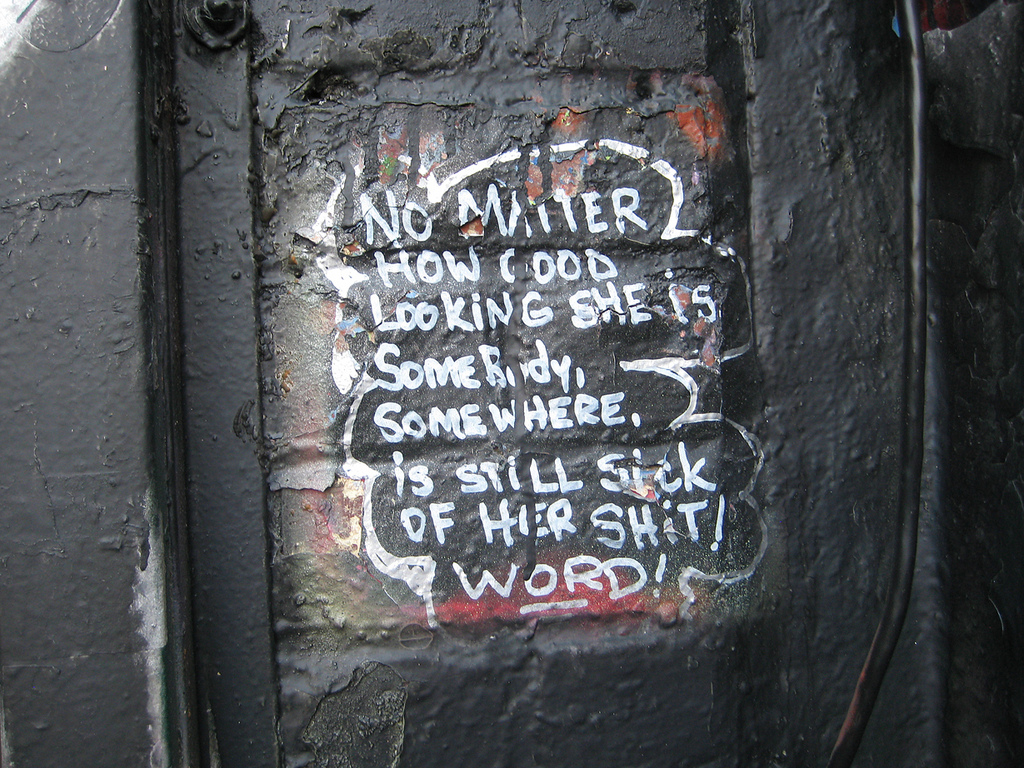 NO MATTER
HOW GOOD
LOOKING SHE iS
SOMEBOdy,
SOMEWHERE,
iS STiLL SiCK
OF HER SHiT!
WORD!